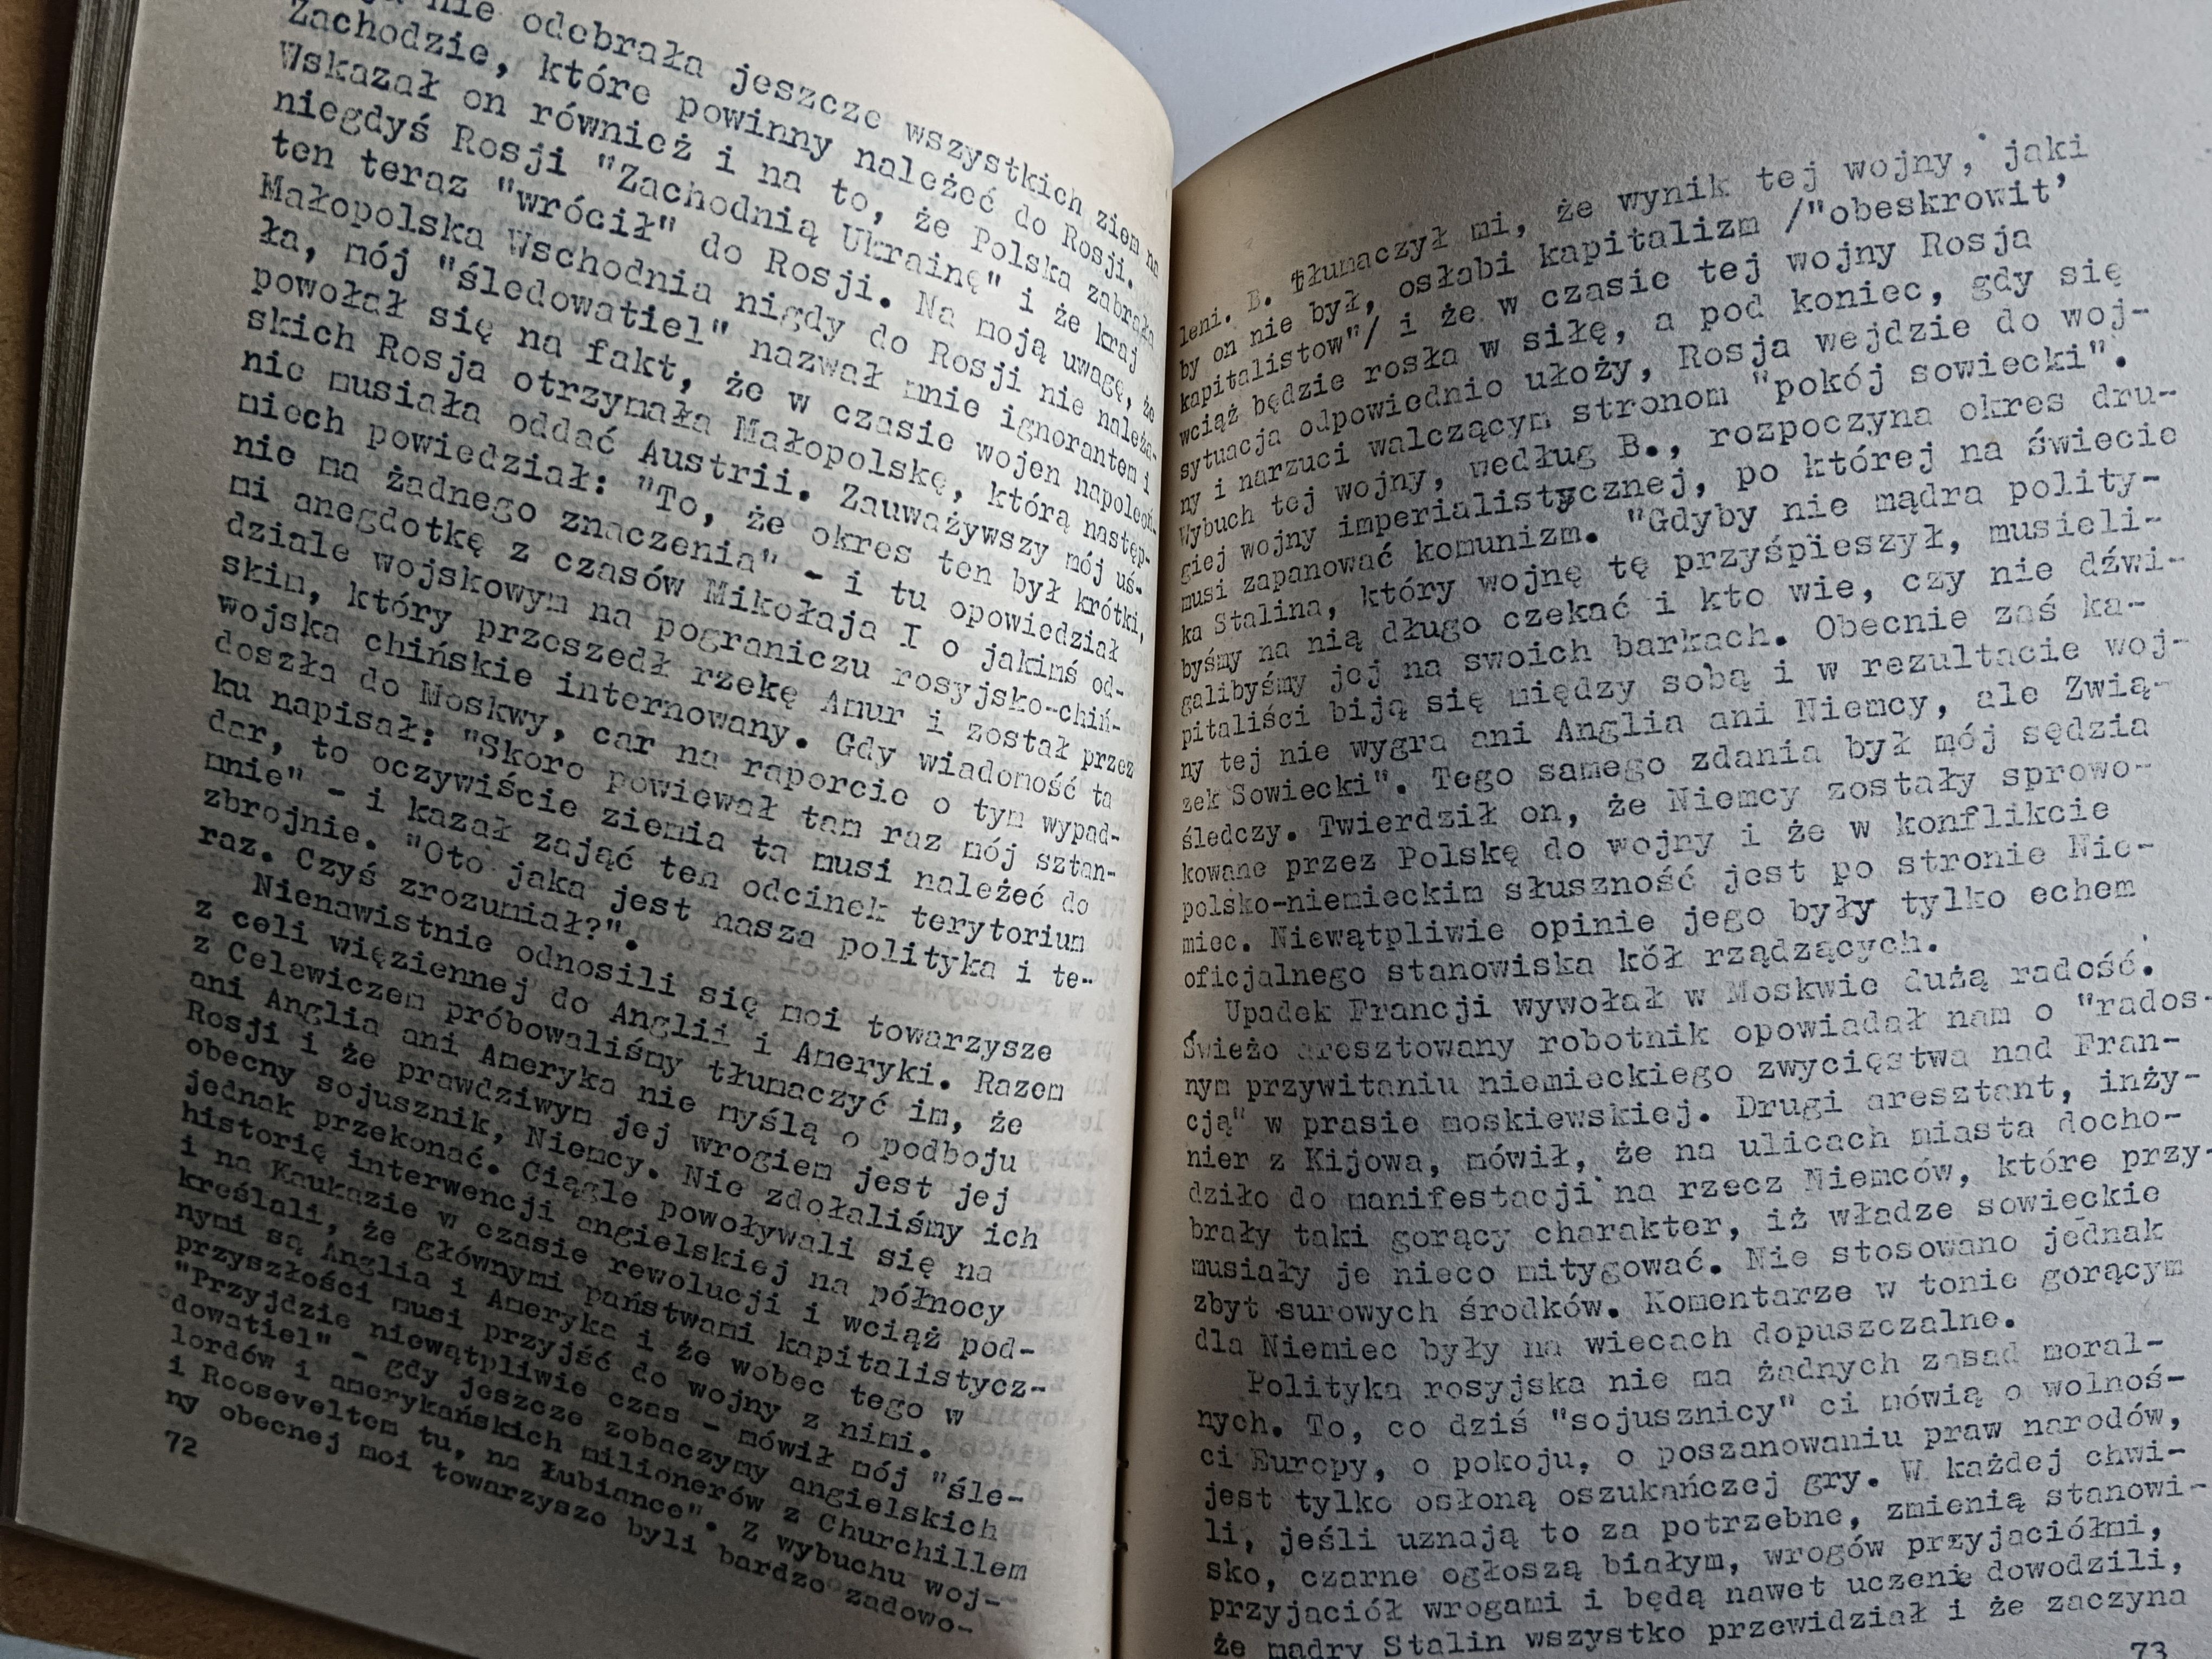 nie odebrała jeszcze wszystkich ziem na
Zachodzie, które powinny należeć do Rosji.
Wskazał on również i na to, że Polska zabrała
niegdyś Rosji "Zachodnią Ukrainę" i że kraj
ten teraz "wrócił" do Rosji. Na moją uwagę, że
Małopolska Wschodnia nigdy do Rosji nie należa-
ła, mój "śledowatiel" nazwał mnie ignorantem i
powołał się na fakt, że w czasie wojen napoleoń-
skich Rosja otrzymała Małopolskę, którą następ-
nie musiała oddać Austrii. Zauważywszy mój uś-
miech powiedział: "To, że okres ten był krótki,
nie ma żadnego znaczenia" - i tu opowiedział
mi anegdotkę z czasów Mikołaja I o jakimś od-
dziale wojskowym na pograniczu rosyjsko-chiń-
skim, który przeszedł rzekę Amur i został przez
wojska chińskie internowany. Gdy wiadomość ta
doszła do Moskwy, car na raporcie o tym wypad-
ku napisał: "Skoro powiewał tam raz mój sztan-
dar, to oczywiście ziemia ta musi należeć do
mnie" - i kazał zająć ten odcinek terytorium
zbrojnie. "Oto jaka jest nasza polityka i te-
raz. Czyś zrozumiał?".
Nienawistnie odnosili się moi towarzysze
z celi więziennej do Anglii i Ameryki. Razem
z Celewiczem próbowaliśmy tłumaczyć im, że
ani Anglia ani Ameryka nie myślą o podboju
Rosji i że prawdziwym jej wrogiem jest jej
obecny sojusznik, Niemcy. Nie zdołaliśmy ich
jednak przekonać. Ciągle powoływali się na
historię interwencji angielskiej na północy
i na Kaukazie w czasie rewolucji i wciąż pod-
kreślali, że głównymi państwami kapitalistycz-
nymi są Anglia i Ameryka i że wobec tego w
przyszłości musi przyjść do wojny z nimi.
"Przyjdzie niewątpliwie czas - mówił mój "śle-
dowatiel" - gdy jeszcze zobaczymy angielskich
lordów i amerykańskich milionerów z Churchillem
i Rooseveltem tu, na Łubiance". Z wybuchu woj-
ny obecnej moi towarzysze byli bardzo zadowo-
72
leni. B. tłumaczył mi, że wynik tej wojny, jaki
by on nie był, osłabi kapitalizm /"obeskrowit'
kapitalistow"/ i że w czasie tej wojny Rosja
wciąż będzie rosła w siłę, a pod koniec, gdy się
sytuacja odpowiednio ułoży, Rosja wejdzie do woj-
ny i narzuci walczącym stronom "pokój sowiecki".
Wybuch tej wojny, według B., rozpoczyna okres dru-
giej wojny imperialistycznej, po której na świecie
musi zapanować komunizm. "Gdyby nie mądra polity-
ka Stalina, który wojnę tę przyśpieszył, musieli-
byśmy na nią długo czekać i kto wie, czy nie dźwi-
galibyśmy jej na swoich barkach. Obecnie zaś ka-
pitaliści biją się między sobą i w rezultacie woj-
ny tej nie wygra ani Anglia ani Niemcy, ale Zwią-
zek Sowiecki". Tego samego zdania był mój sędzia
śledczy. Twierdził on, że Niemcy zostały sprowo-
kowane przez Polskę do wojny i że w konflikcie
polsko-niemieckim słuszność jest po stronie Nie-
miec. Niewątpliwie opinie jego były tylko echem
oficjalnego stanowiska kół rządzących.
Upadek Francji wywołał w Moskwie dużą radość.
Świeżo aresztowany robotnik opowiadał nam o "rados-
nym przywitaniu niemieckiego zwycięstwa nad Fran-
cją" w prasie moskiewskiej. Drugi aresztant, inży-
nier z Kijowa, mówił, że na ulicach miasta docho-
dziło do manifestacji na rzecz Niemców, które przy-
brały taki gorący charakter, iż władze sowieckie
musiały je nieco mitygować. Nie stosowano jednak
zbyt surowych środków. Komentarze w tonie gorącym
dla Niemiec były na wiecach dopuszczalne.
Polityka rosyjska nie ma żadnych zasad moral-
nych. To, co dziś "sojusznicy" ci mówią o wolnoś-
ci Europy, o pokoju, o poszanowaniu praw narodów,
jest tylko osłoną oszukańczej gry. W każdej chwi-
li, jeśli uznają to za potrzebne, zmienią stanowi-
sko, czarne ogłoszą białym, wrogów przyjaciółmi,
przyjaciół wrogami i będą nawet uczenie dowodzili,
że mądry Stalin wszystko przewidział i że zaczyna
73